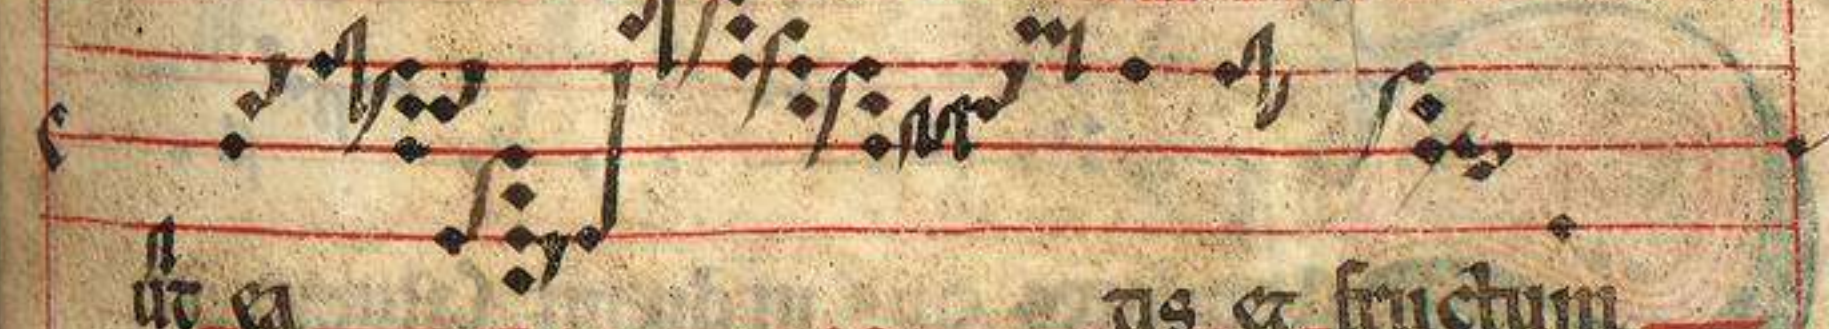 ut ea tis et fructum